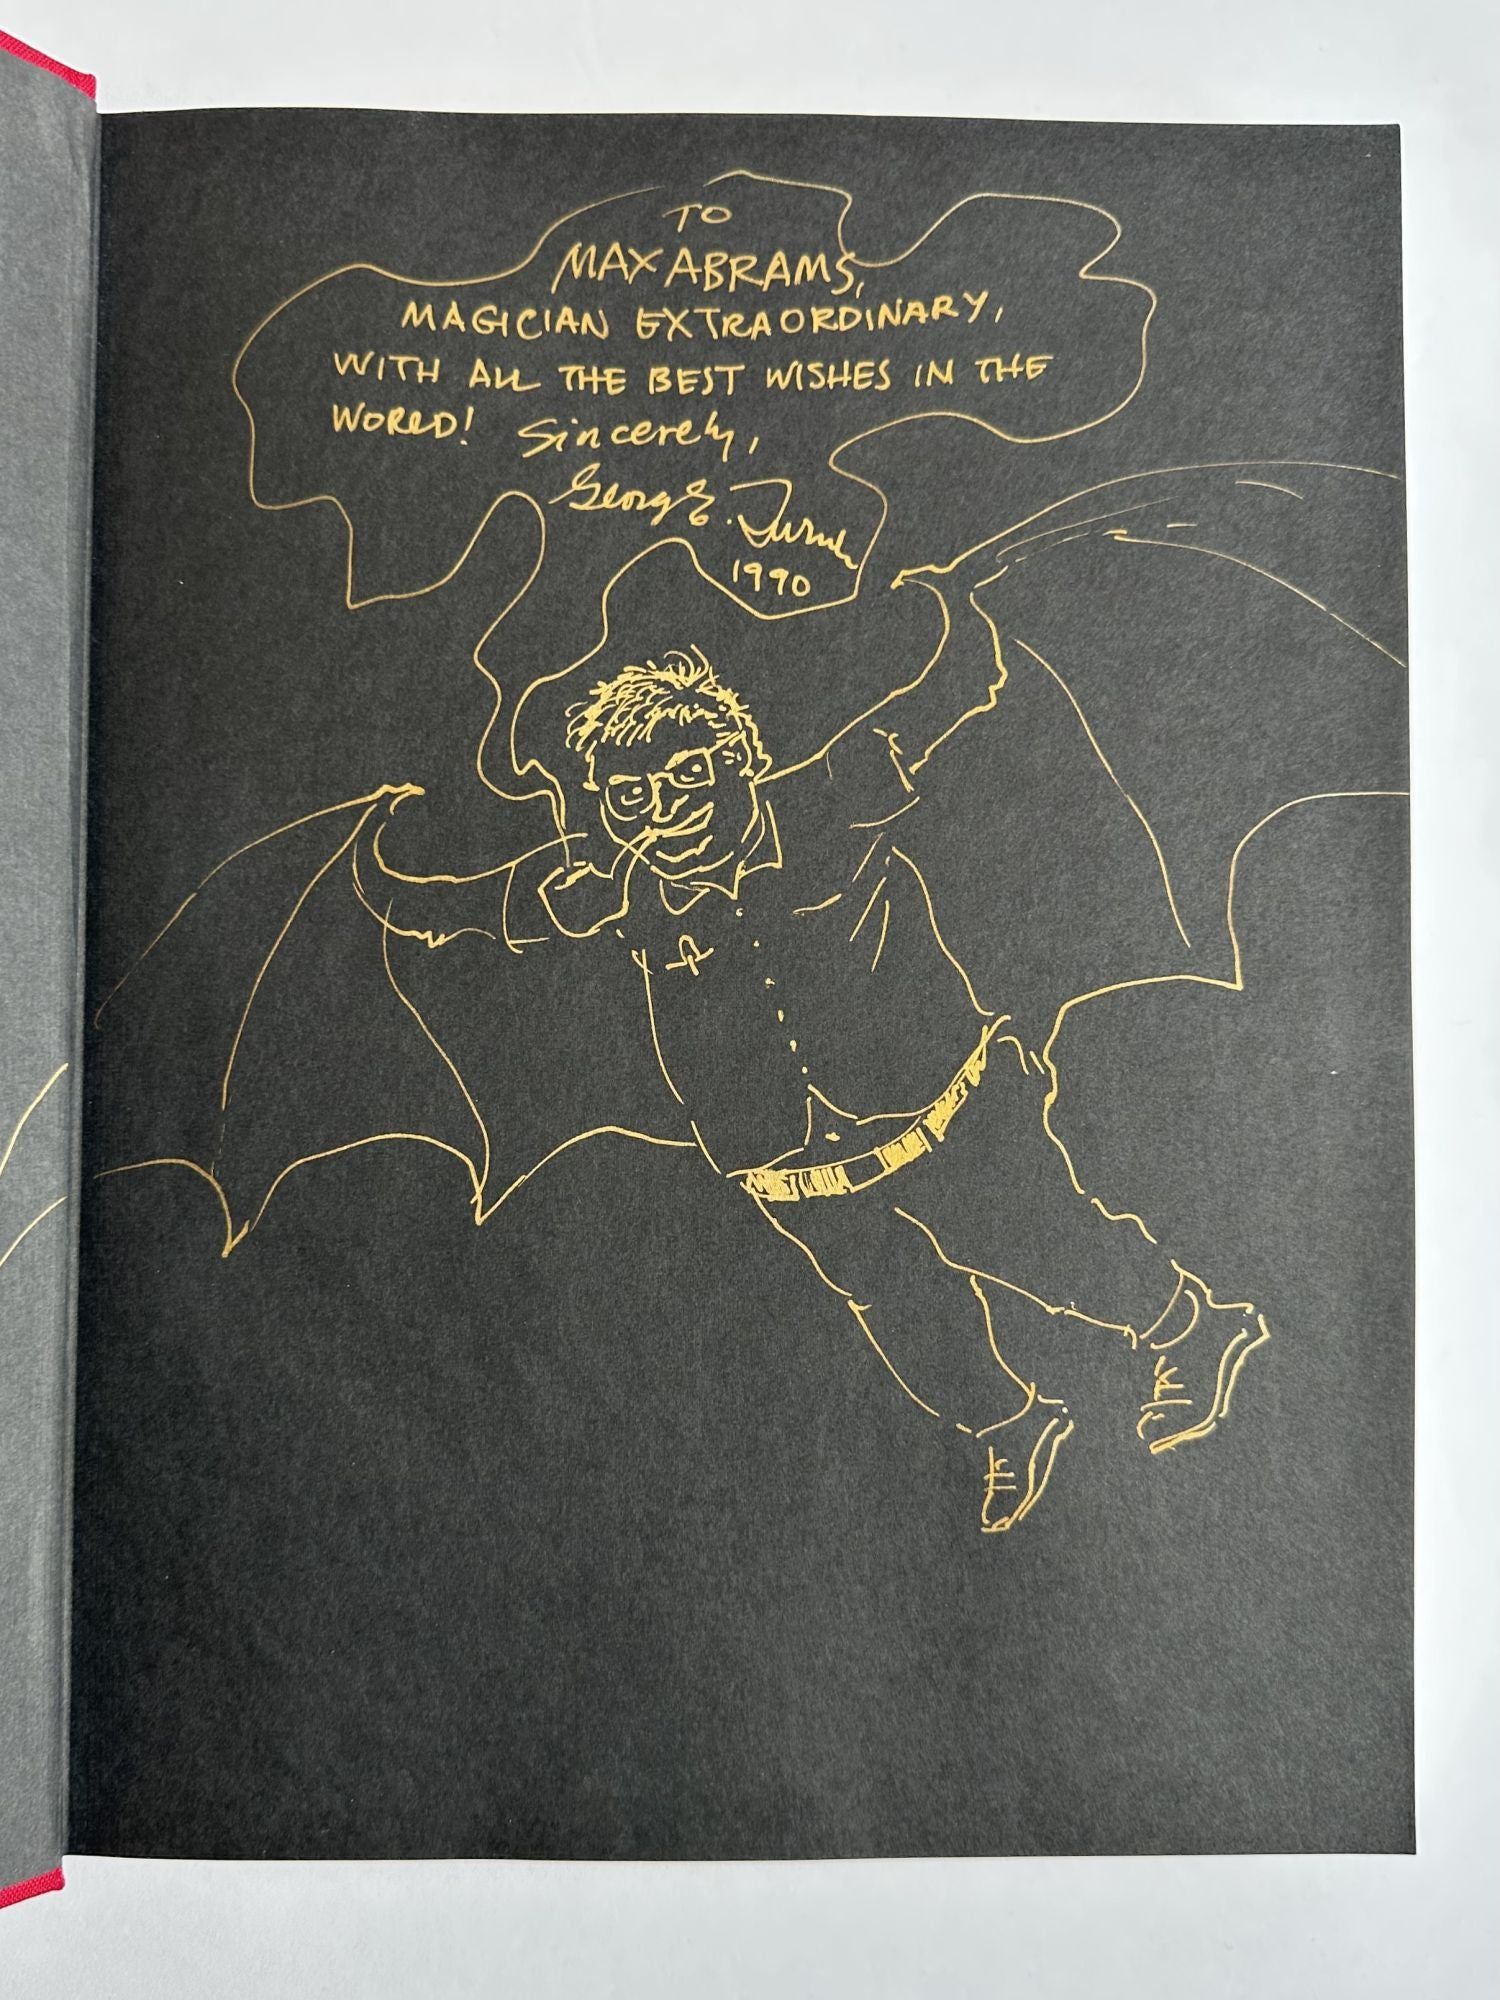 TO
MAX ABRAMS,
MAGICIAN EXTRAORDINARY,
WITH ALL THE BEST WISHES IN THE
WORLD! Sincerely,
George E. Turner
1990